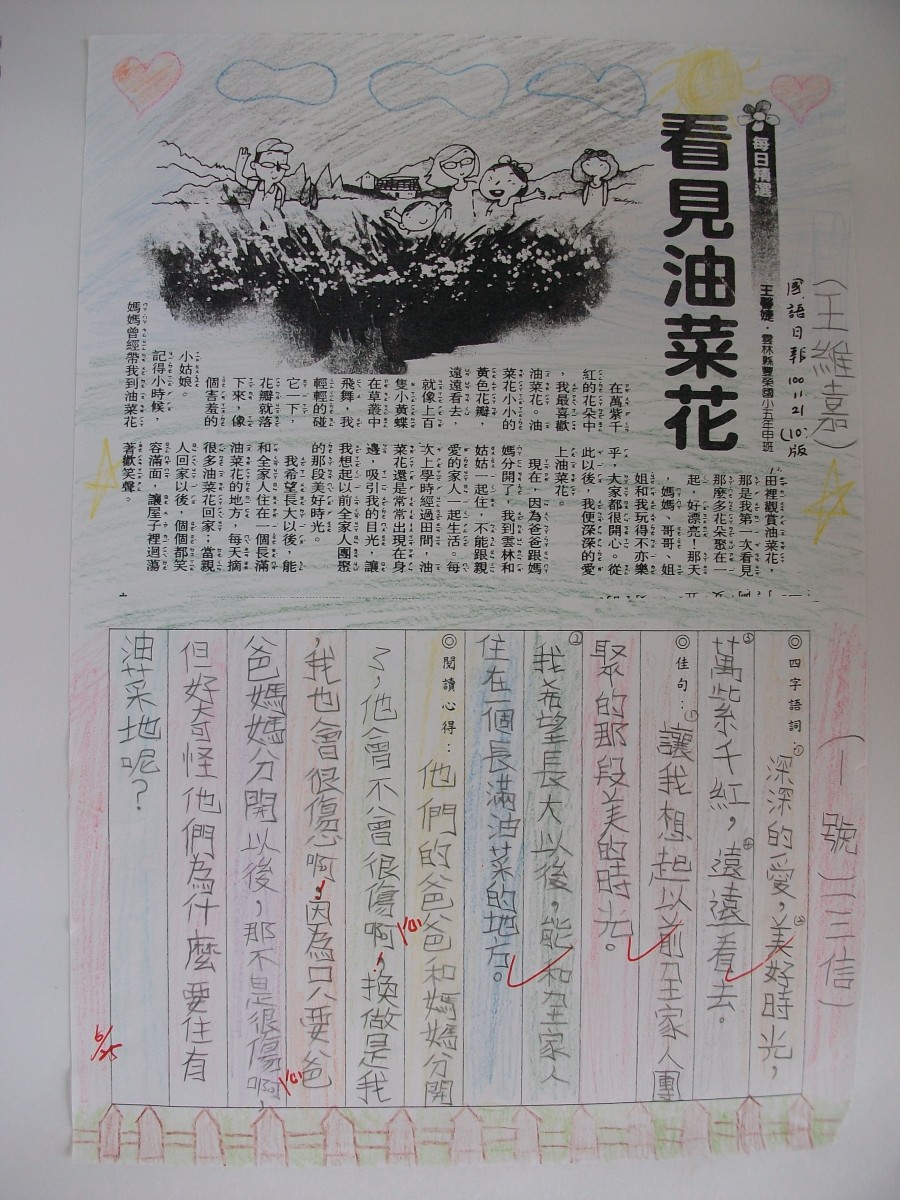 每日精選
看見油菜花
王馨婕‧雲林縣豐榮國小五年甲班
國語日報 100.11.21 (10版)
(王維嘉)
在萬紫千
紅的花朵中
，我最喜歡
油菜花。油
菜花小小的
黃色花瓣，
遠遠看去，
就像上百
隻小黃蝶
在草叢中
飛舞，我
輕輕的碰
它一下，
花瓣就落
下來，像
個害羞的
小姑娘。
記得小時候，
媽媽曾經帶我到油菜花
田裡觀賞油菜花，
那是我第一次看見
那麼多花朵聚在一
起，好漂亮！那天
，媽媽、哥哥、姐
姐和我玩得不亦樂
乎，大家都很開心。從
此以後，我便深深的愛
上油菜花。
現在，因為爸爸跟媽
媽分開了，我到雲林和
姑姑一起住，不能跟親
愛的家人一起生活。每
次上學時經過田間，油
菜花還是常常出現在身
邊，吸引我的目光，讓
我想起以前全家人團聚
的那段美好時光。
我希望長大以後，能
和全家人住在一個長滿
油菜花的地方，每天摘
很多油菜花回家；當親
人回家以後，個個都笑
容滿面，讓屋子裡迴盪
著歡笑聲。
(一號)(三信)
◎四字語詞：①深深的愛，②美好時光，
③萬紫千紅，④遠遠看去。
◎佳句：①讓我想起以前全家人團
聚的那段美的時光。
②我希望長大以後，能和全家人
住在一個長滿油菜的地方。
◎閱讀心得：他們的爸爸和媽媽分開
了，他會不會很傷心啊，換做是我
，我也會很傷心啊，因為只要爸
爸媽媽分開以後，那不是很傷心啊，
但好奇怪他們為什麼要住有
油菜地呢？
6/25